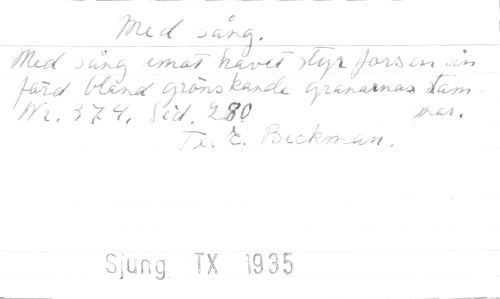 Med sång.
Med sång emot havet styr forsen sin
färd bland grönskande granarnas stam-
mar.
Nr. 374. Sid. 280
Tx. E. Beckman.
Sjung TX 1935